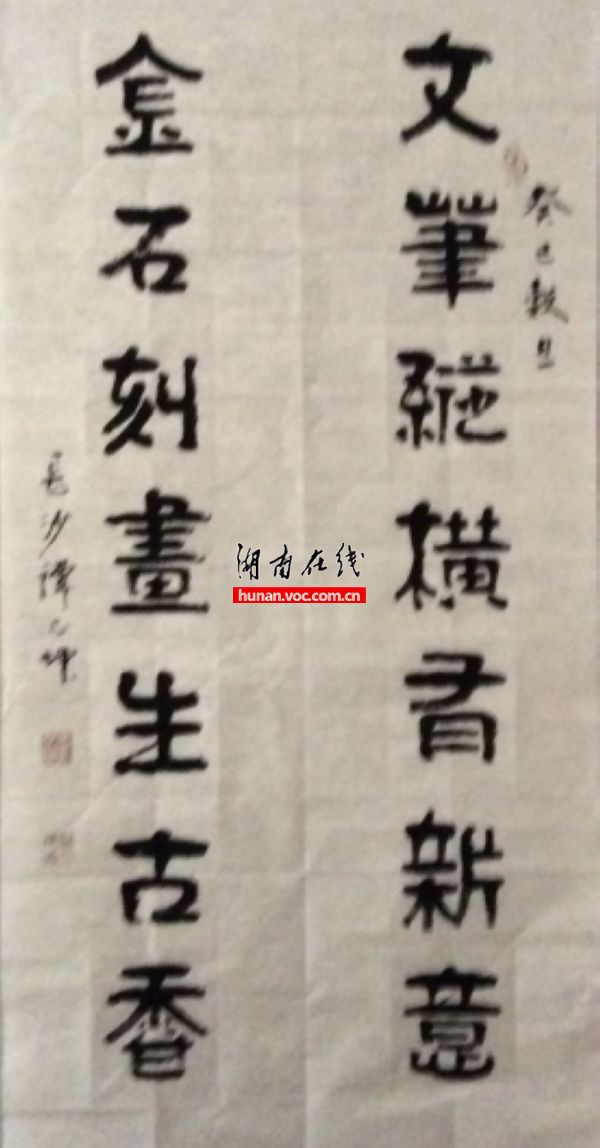 癸巳穀旦
文筆縱橫有新意
金石刻畫生古香
長沙譚
湖南在线
hunan.voc.com.cn